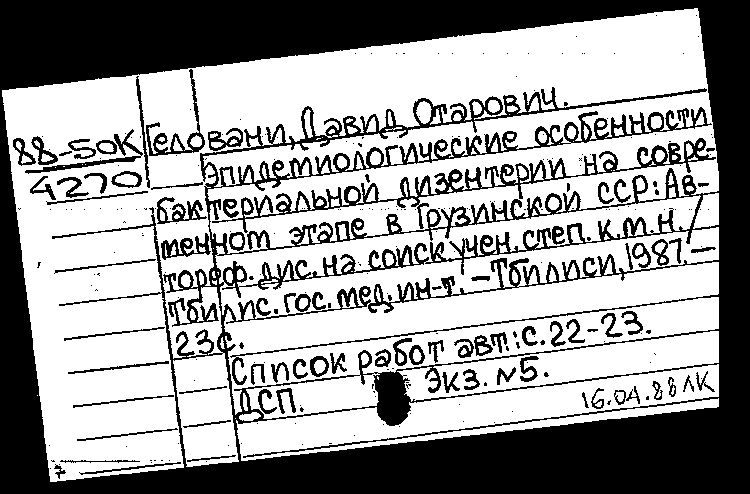 88-50К
4270
Геловани, Давид Отарович.
Эпидемиологические особенности
бактериальной дизентерии на совре-
менном этапе в Грузинской ССР: Ав-
тореф. дис. на соиск. учен. степ. к.м.н. /
Тбилис. гос. мед. ин-т. – Тбилиси, 1987. –
23с.
Список работ авт.: с. 22-23.
ДСП. Экз. №5.
16.04.88 ЛК
7